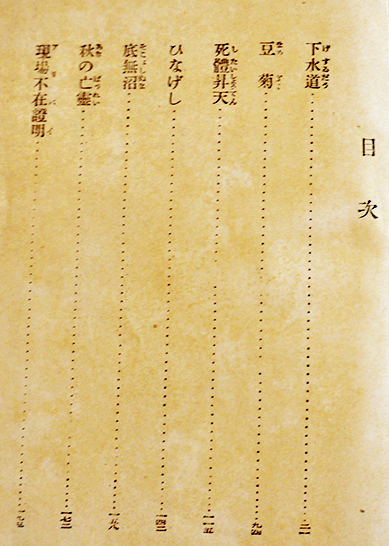 目次
下水道……三一
豆菊……九四
死體昇天……一一五
ひなげし……一四二
底無沼……一五八
秋の亡霊……一七三
現場不在證明……一九五